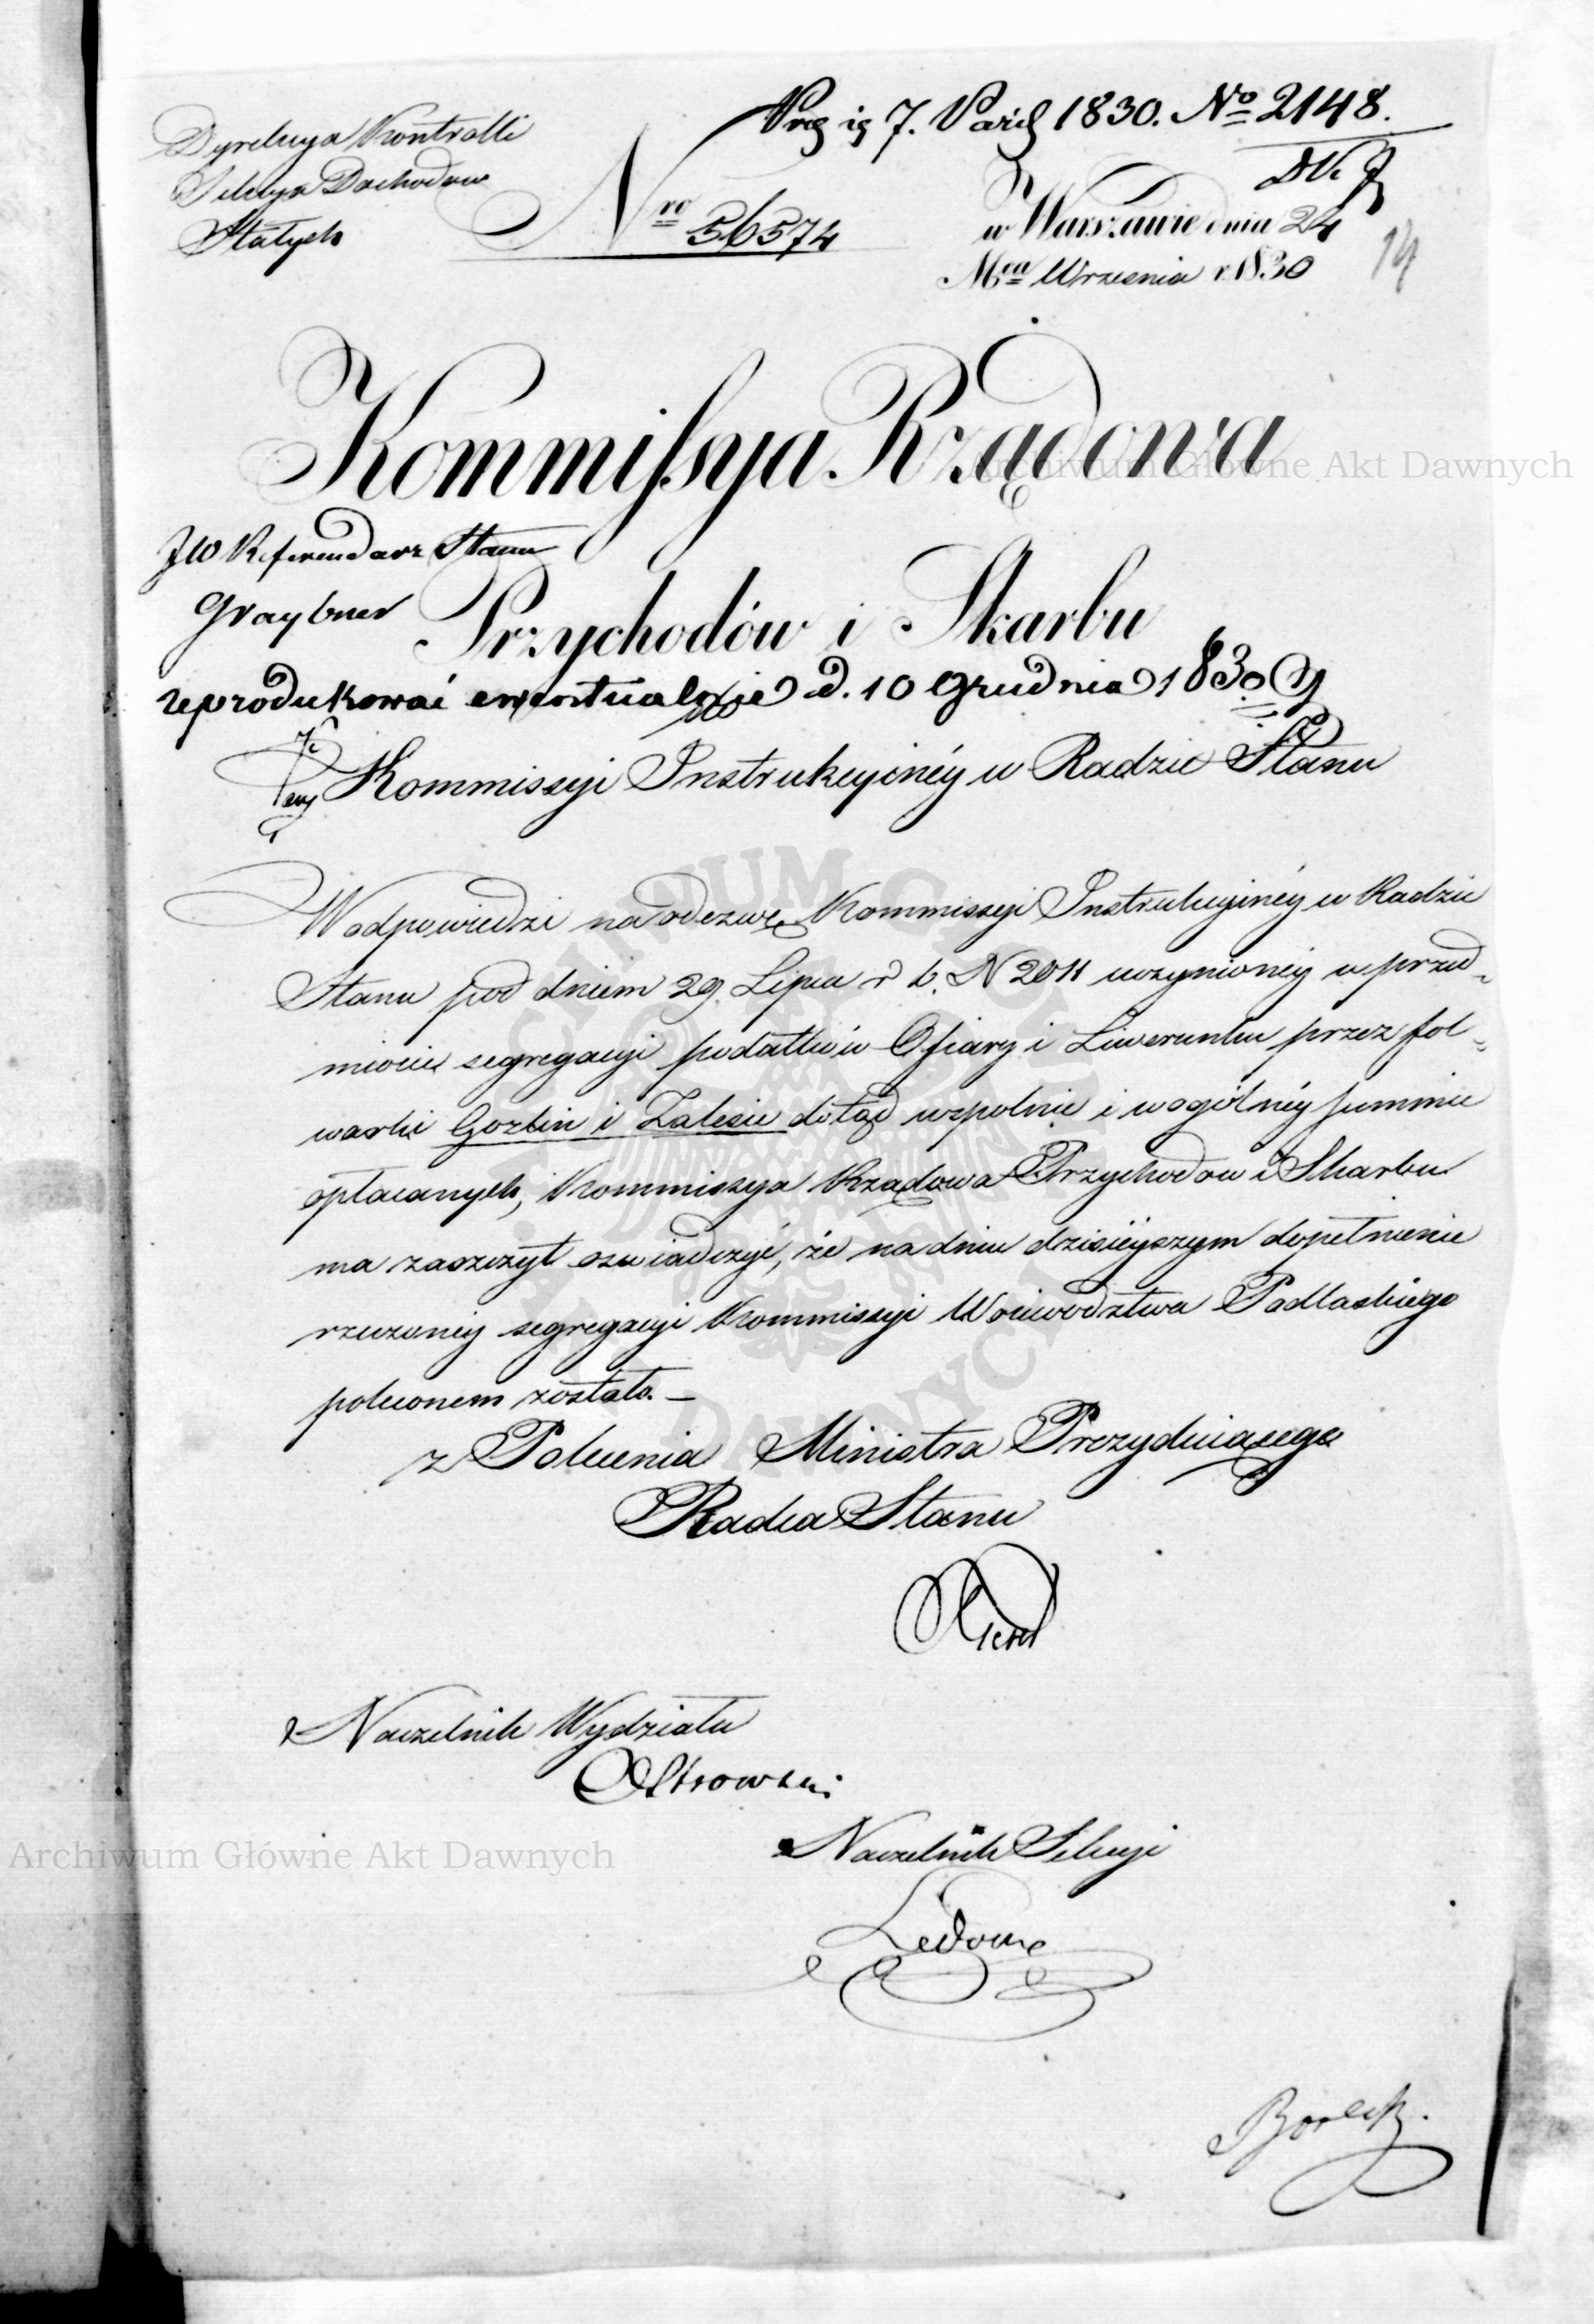 Dyrekcya Kontrolli
Sekcya Dochodów
Stałych
Nro 56574
7. Paźd 1830. No 2148.
w Warszawie dnia 24
Mca Września r. 1830
19
Kommissya Rządowa
Archiwum Główne Akt Dawnych
JW Referendarz Stanu
Graybner
Przychodów i Skarbu
reprodukować ewentualnie d. 10 Grudnia 1830
Kommissyi Instrukcyinéy w Radzie Stanu
W odpowiedzi na odezwę Kommissyi Instrukcyinéy w Radzie
Stanu pod dniem 29. Lipca r b. N 2011 uczynionéy w przed-
miocie segregacyi podatków Ofiary i Liwerunku przez fol-
warki Gozlin i Zalesie dotąd wspolnie i w ogólnéy summie
opłacanych, Kommissya Rządowa Przychodow i Skarbu
ma zaszczyt oswiadczyć, że na dniu dzisiéyszym dopełnienie
rzeczonéy segregacyi Kommissyi Woiewodztwa Podlaskiego
poleconem zostało. —
z Polecenia Ministra Prezyduiącego
Radca Stanu
Naczelnik Wydziału
Ostrowski
Naczelnik Sekcyi
Archiwum Główne Akt Dawnych
ARCHIWUM GŁÓWNE AKT DAWNYCH